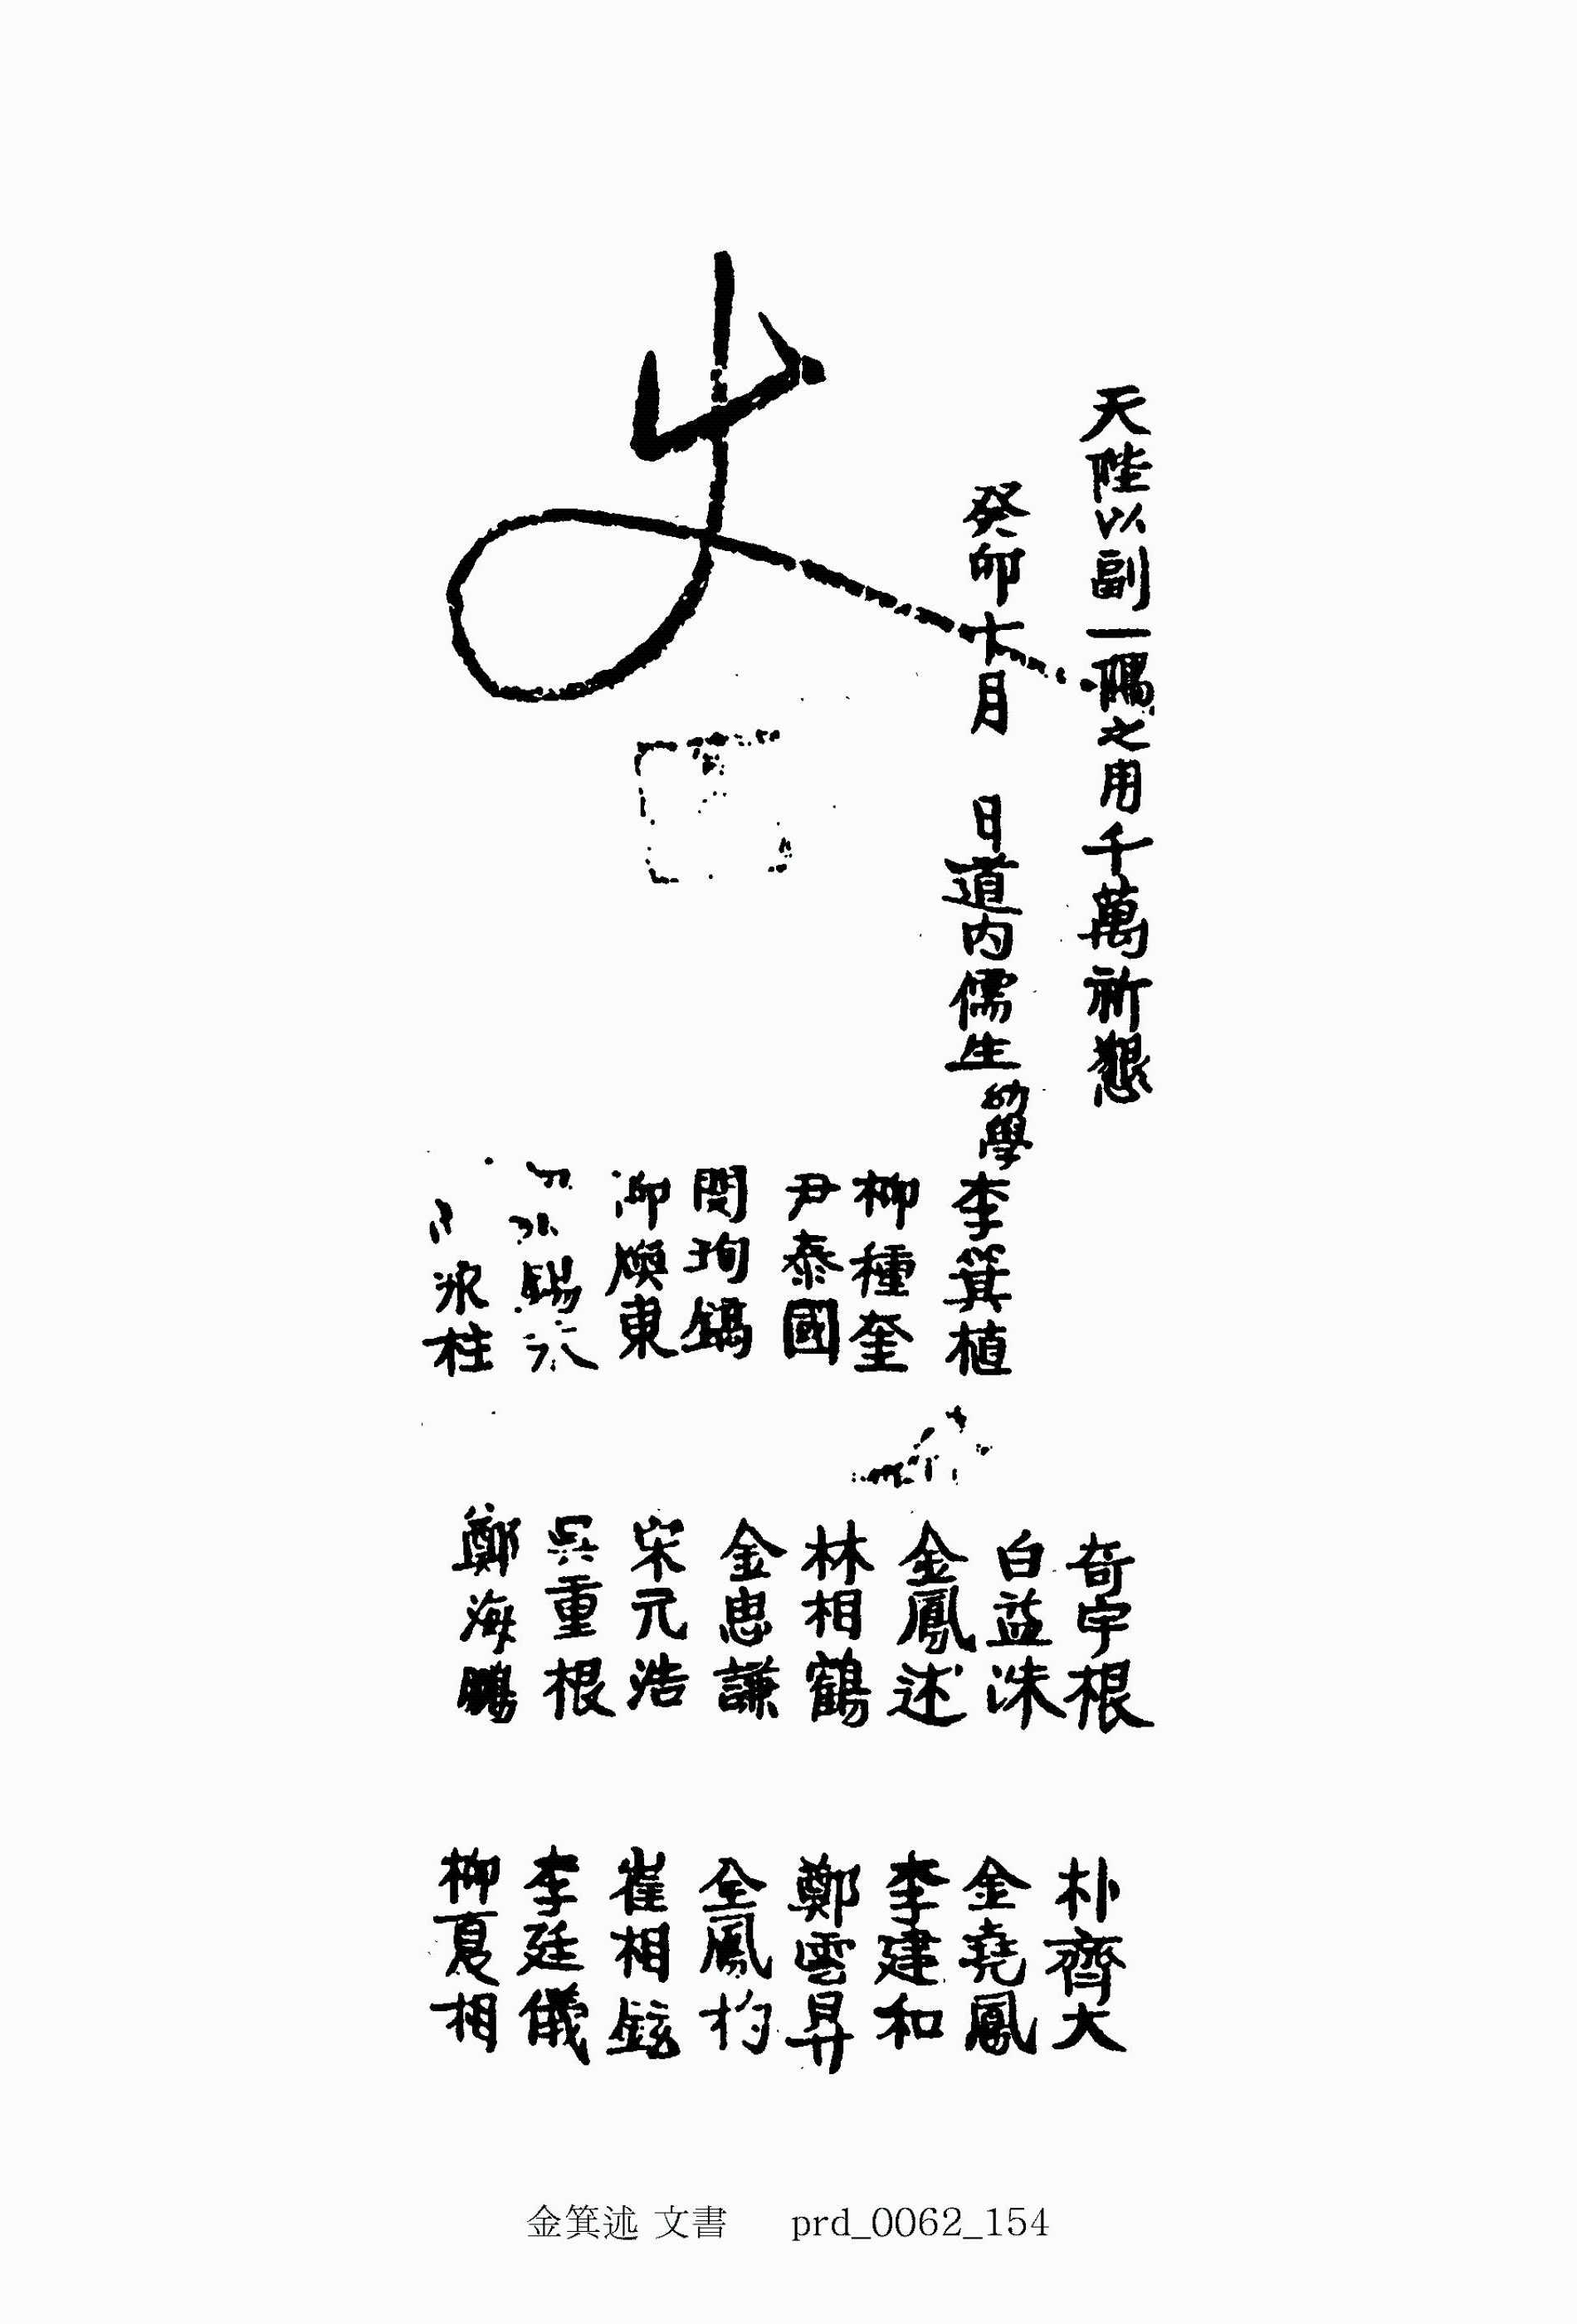 天陛以副一隅之用千萬祈懇
癸卯十月 日道内儒生幼學李箕植
柳種奎
尹泰國
閔珣鎬
柳煥東
錫
永柱
奇宇根
白益洙
金鳳述
林相鶴
金思謙
宋元浩
吳重根
鄭海鵬
朴齊大
金堯鳳
李建和
鄭雲昇
全鳳杓
崔相鉉
李廷儀
柳夏相
金箕述 文書 prd_0062_154